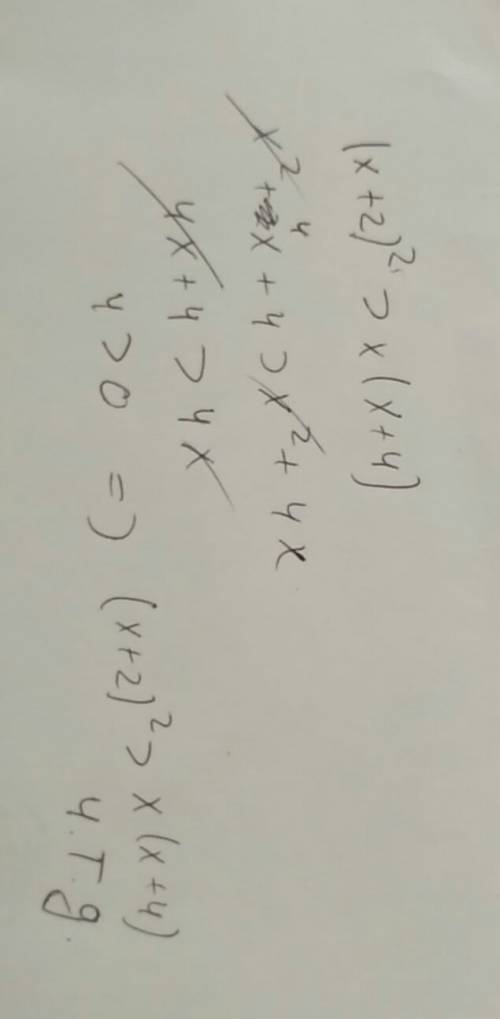 (x+2)² > x(x+4)
x² + 4x + 4 > x² + 4x
4x + 4 > 4x
4 > 0 => (x+2)² > x(x+4)
ч.т.д.